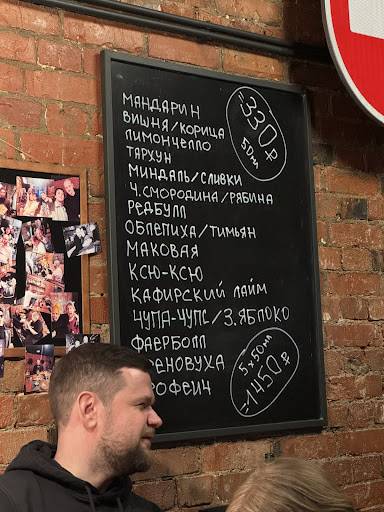 МАНДАРИН
ВИШНЯ/КОРИЦА
ЛИМОНЧЕЛЛО
ТАРХУН
МИНДАЛЬ/СЛИВКИ
Ч.СМОРОДИНА/РЯБИНА
РЕДБУЛЛ
ОБЛЕПИХА/ТИМЬЯН
МАКОВАЯ
КСЮ-КСЮ
КАФИРСКИЙ ЛАЙМ
ЧУПА-ЧУПС/З.ЯБЛОКО
ФАЕРБОЛЛ
РЕНОВУХА
ОФЕИН
=330₽
50ml
5x50ml
=1450₽